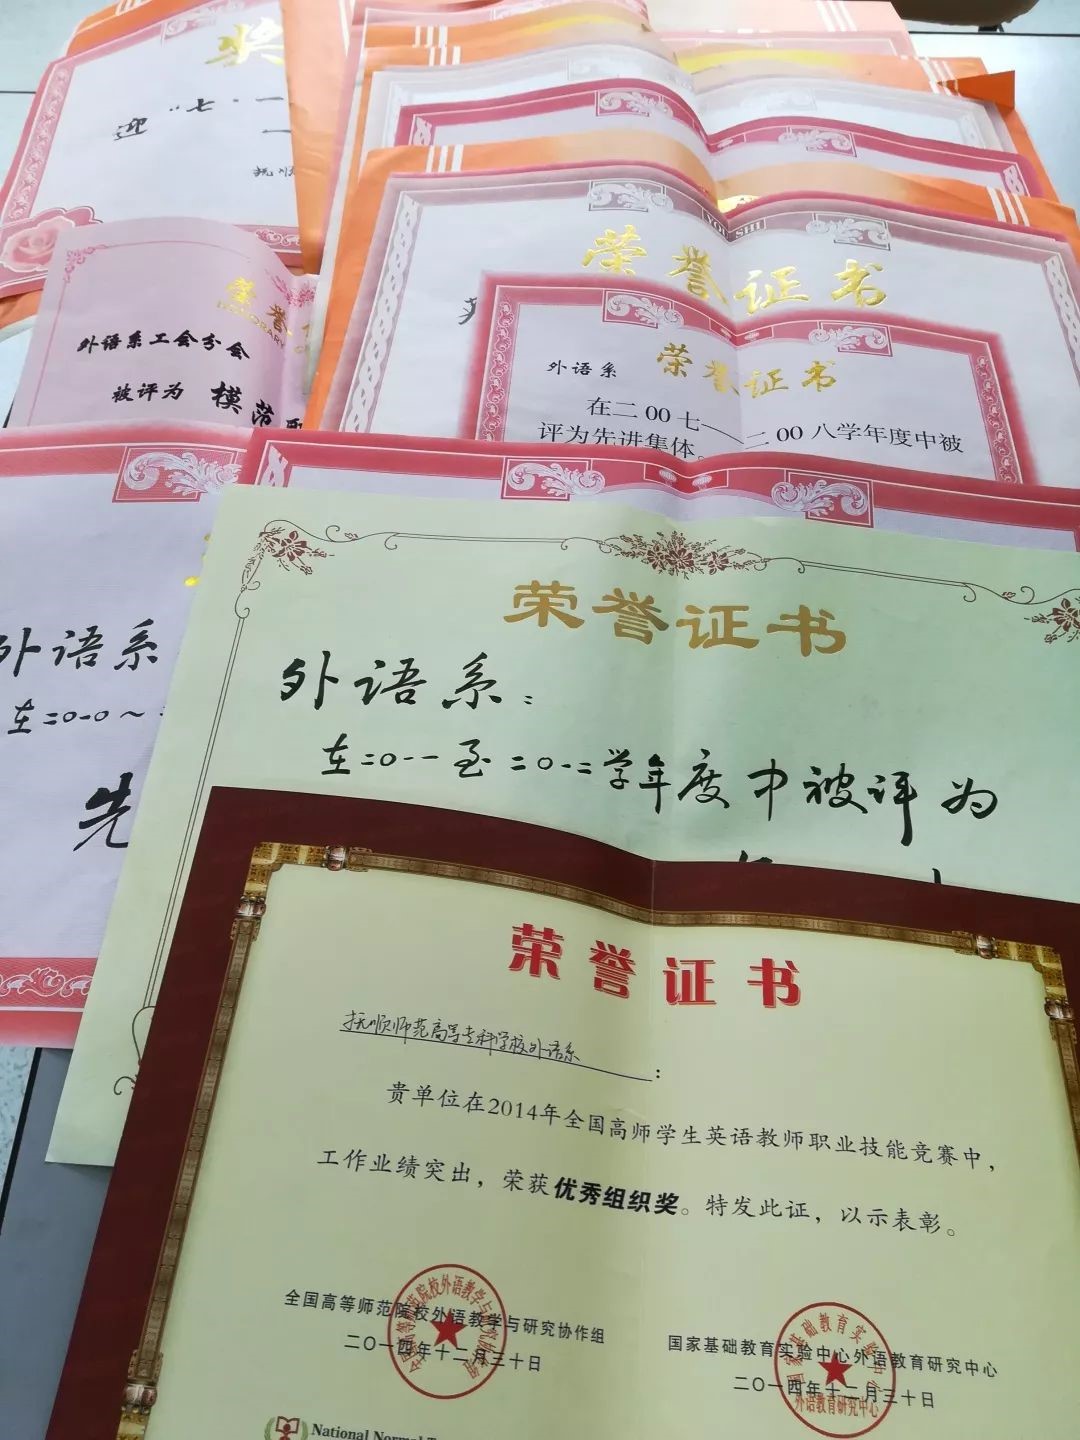 奖
迎"七·一
YOU SHI
荣誉证书
外语系工会分会
被评为 模范
外语系
荣誉证书
在二00七——二00八学年度中被
评为先进集体。
外语系
在二〇一〇~
先
荣誉证书
外语系：
在二〇一一至二〇一二学年度中被评为
荣誉证书
抚顺师范高等专科学校外语系：
贵单位在2014年全国高师学生英语教师职业技能竞赛中，
工作业绩突出，荣获优秀组织奖。特发此证，以示表彰。
全国高等师范院校外语教学与研究协作组
二〇一四年十二月三十日
国家基础教育实验中心外语教育研究中心
二〇一四年十二月三十日
外语教育研究中心
National Normal